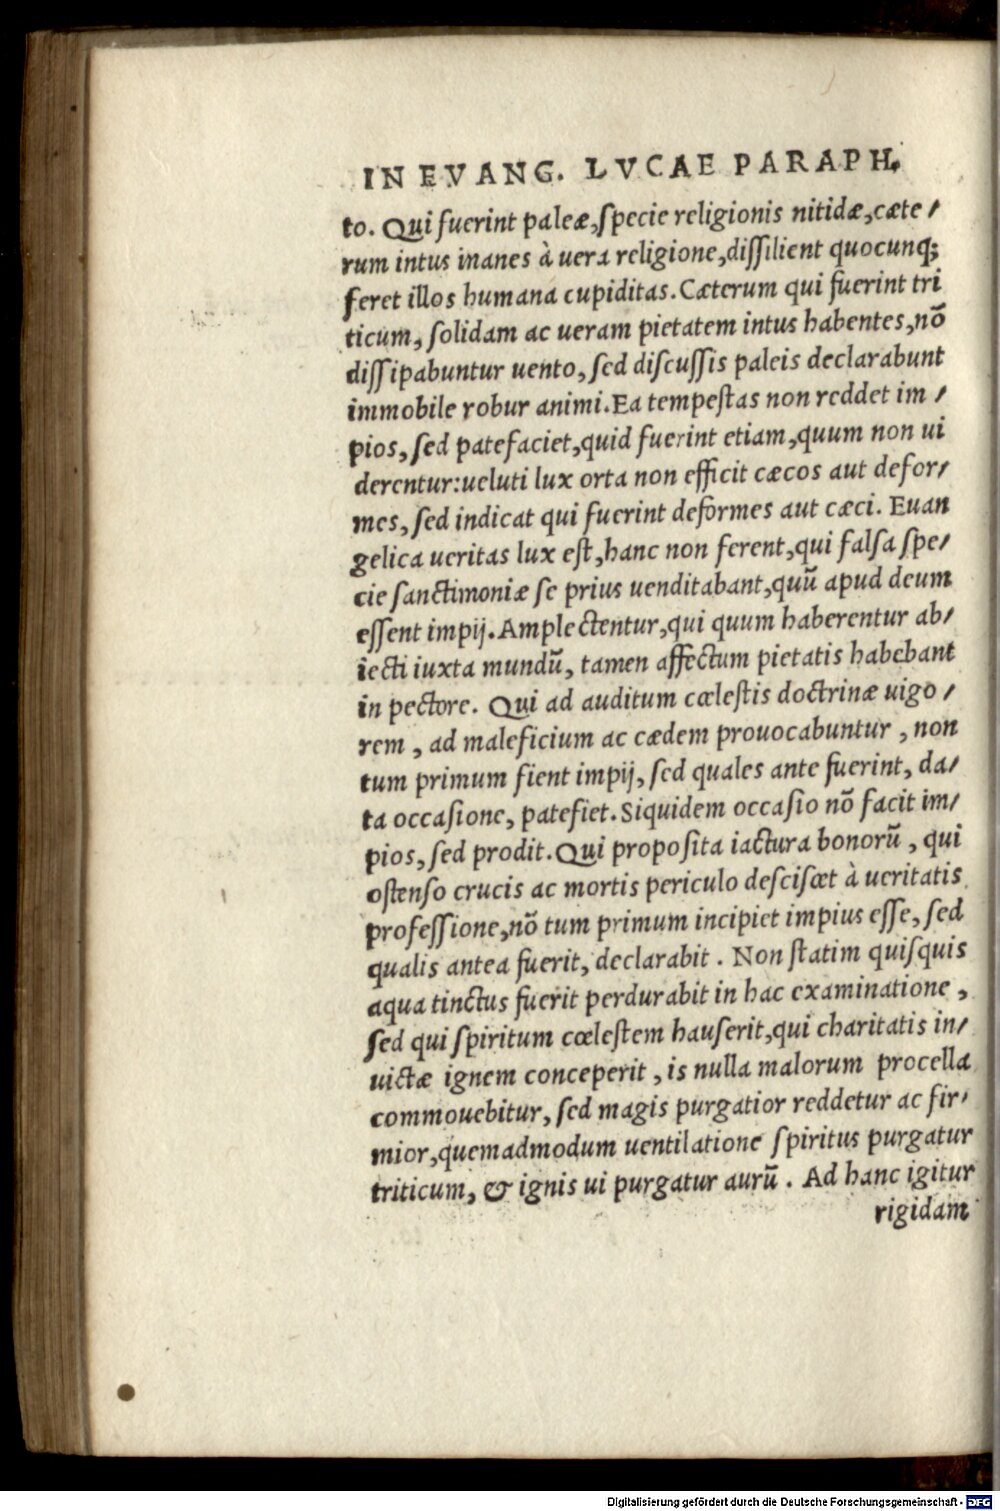 IN EVANG. LVCAE PARAPH.
to. Qui fuerint paleæ, ſpecie religionis nitidæ, cæte/
rum intus inanes à uera religione, diſſilient quocunq;
feret illos humana cupiditas. Cæterum qui fuerint tri
ticum, ſolidam ac ueram pietatem intus habentes, nõ
diſſipabuntur uento, ſed diſcuſſis paleis declarabunt
immobile robur animi. Ea tempeſtas non reddet im/
pios, ſed patefaciet, quid fuerint etiam, quum non ui
derentur: ueluti lux orta non efficit cæcos aut defor/
mes, ſed indicat qui fuerint deformes aut cæci. Euan
gelica ueritas lux eſt, hanc non ferent, qui falſa ſpe/
cie ſanctimoniæ ſe prius uenditabant, quũ apud deum
eſſent impij. Amplectentur, qui quum haberentur ab/
iecti iuxta mundũ, tamen affectum pietatis habebant
in pectore. Qui ad auditum cœleſtis doctrinæ uigo/
rem, ad maleficium ac cædem prouocabuntur, non
tum primum fient impij, ſed quales ante fuerint, da/
ta occaſione, patefiet. Siquidem occaſio nõ facit im/
pios, ſed prodit. Qui propoſita iactura bonorũ, qui
oſtenſo crucis ac mortis periculo deſciſcet à ueritatis
profeſſione, nõ tum primum incipiet impius eſſe, ſed
qualis antea fuerit, declarabit. Non ſtatim quiſquis
aqua tinctus fuerit perdurabit in hac examinatione,
ſed qui ſpiritum cœleſtem hauſerit, qui charitatis in/
uictæ ignem conceperit, is nulla malorum procella
commouebitur, ſed magis purgatior reddetur ac fir/
mior, quemadmodum uentilatione ſpiritus purgatur
triticum, & ignis ui purgatur aurũ. Ad hanc igitur
rigidam
Digitalisierung gefördert durch die Deutsche Forschungsgemeinschaft - DFG